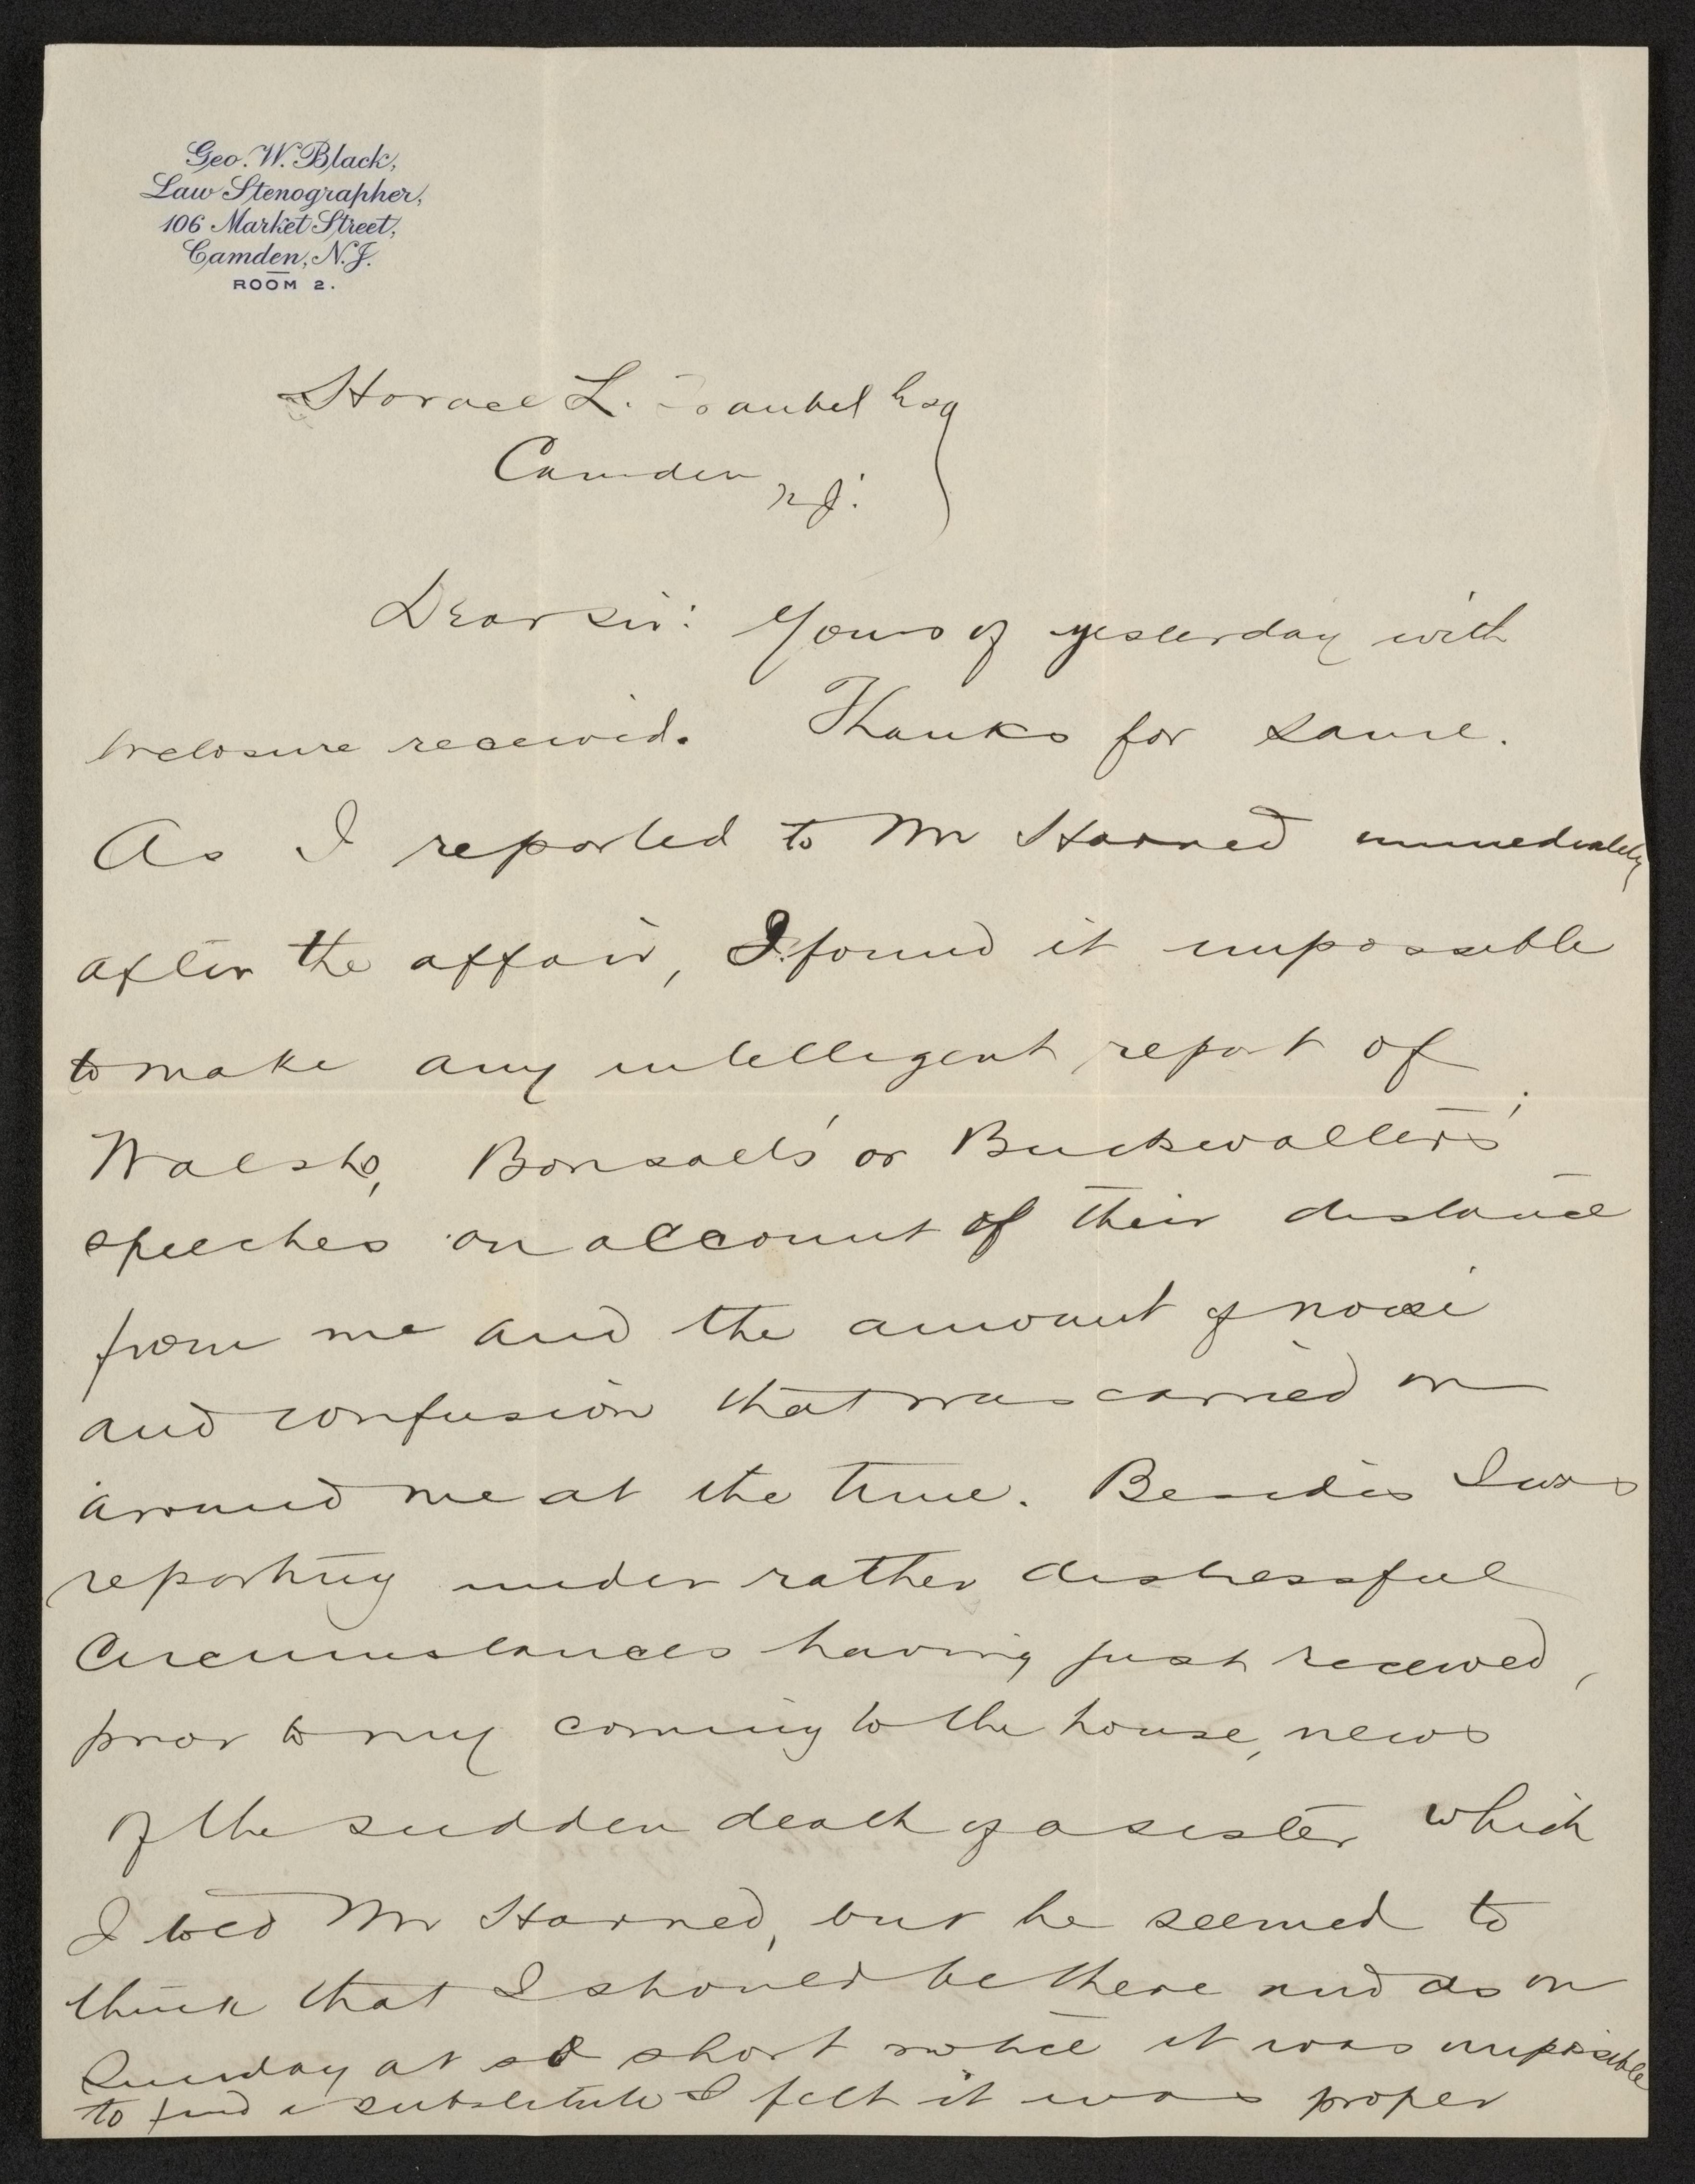 Geo. W. Black,
Law Stenographer,
106 Market Street,
Camden, N.J.
ROOM 2.
Horace L. Traubel Esq
Camden N.J.
Dear Sir: Yours of yesterday with
inclosure received. Thanks for same.
As I reported to Mr Harned immediately
after the affair, I found it impossible
to make any intelligent report of
Walsh's, Bonsall's or Buckwalter's
speeches on account of their distance
from me and the amount of noise
and confusion that was carried on
around me at the time. Besides I was
reporting under rather distressful
circumstances having just received,
prior to my coming to the house, news
of the sudden death of a sister which
I told Mr Harned, but he seemed to
think that I should be there and as on
Sunday at so short notice it was impossible
to find a substitute I felt it was proper